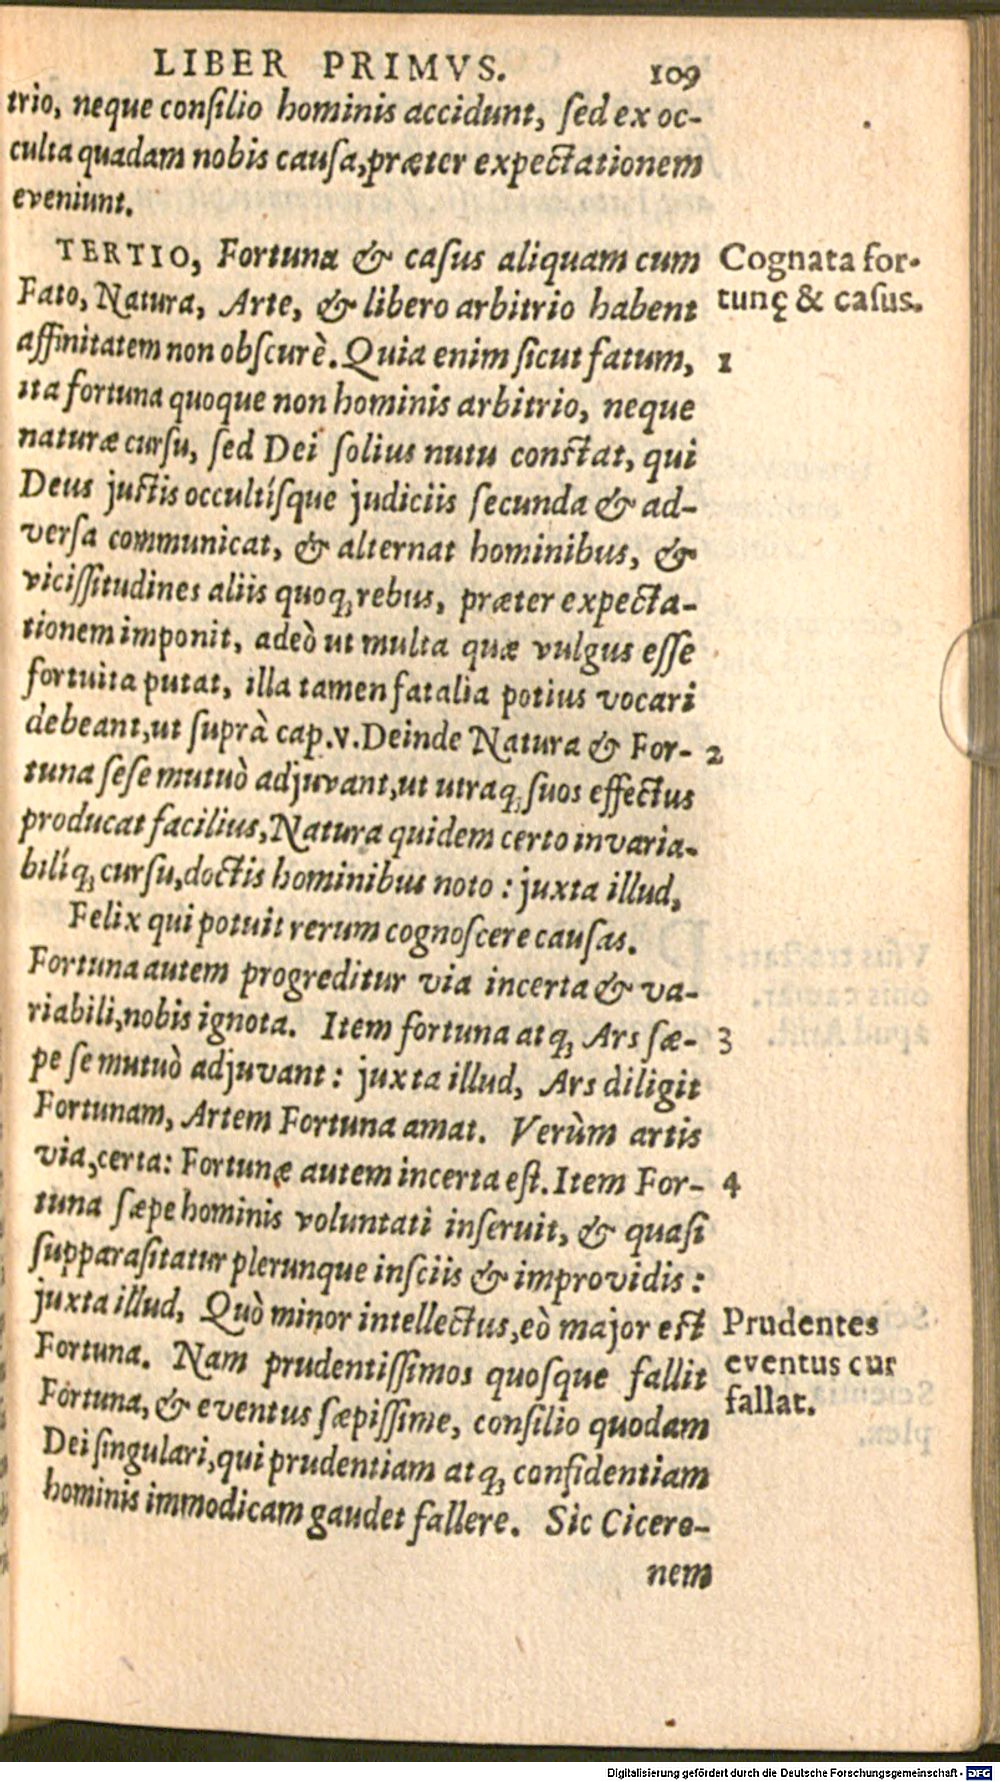 LIBER PRIMVS. 109
trio, neque conſilio hominis accidunt, ſed ex oc-
culta quadam nobis cauſa, præter expectationem
eveniunt.
TERTIO, Fortuna & caſus aliquam cum
Fato, Natura, Arte, & libero arbitrio habent
affinitatem non obſcurè. Quia enim ſicut fatum,
ita fortuna quoque non hominis arbitrio, neque
naturæ curſu, ſed Dei ſolius nutu conſtat, qui
Deus juſtis occultíſque judiciis ſecunda & ad-
verſa communicat, & alternat hominibus, &
viciſſitudines aliis quoq; rebus, præter expecta-
tionem imponit, adeò ut multa quæ vulgus eſſe
fortuita putat, illa tamen fatalia potius vocari
debeant, ut ſuprà cap. v. Deinde Natura & For-
tuna ſeſe mutuò adjuvant, ut utraq; ſuos effectus
producat facilius, Natura quidem certo invaria-
bilíq; curſu, doctis hominibus noto : juxta illud,
Felix qui potuit rerum cognoſcere cauſas.
Fortuna autem progreditur via incerta & va-
riabili, nobis ignota. Item fortuna atq; Ars ſæ-
pe ſe mutuò adjuvant : juxta illud, Ars diligit
Fortunam, Artem Fortuna amat. Verùm artis
via, certa: Fortunæ autem incerta eſt. Item For-
tuna ſæpe hominis voluntati inſeruit, & quaſi
ſupparaſitatur plerunque inſciis & improvidis :
juxta illud, Quò minor intellectus, eò major eſt
Fortuna. Nam prudentiſſimos quoſque fallit
Fortuna, & eventus ſæpiſſime, conſilio quodam
Dei ſingulari, qui prudentiam atq; confidentiam
hominis immodicam gaudet fallere. Sic Cicero-
nem
Cognata for-
tunę & caſus.
1
2
3
4
Prudentes
eventus cur
fallat.
Digitalisierung gefördert durch die Deutsche Forschungsgemeinschaft - DFG